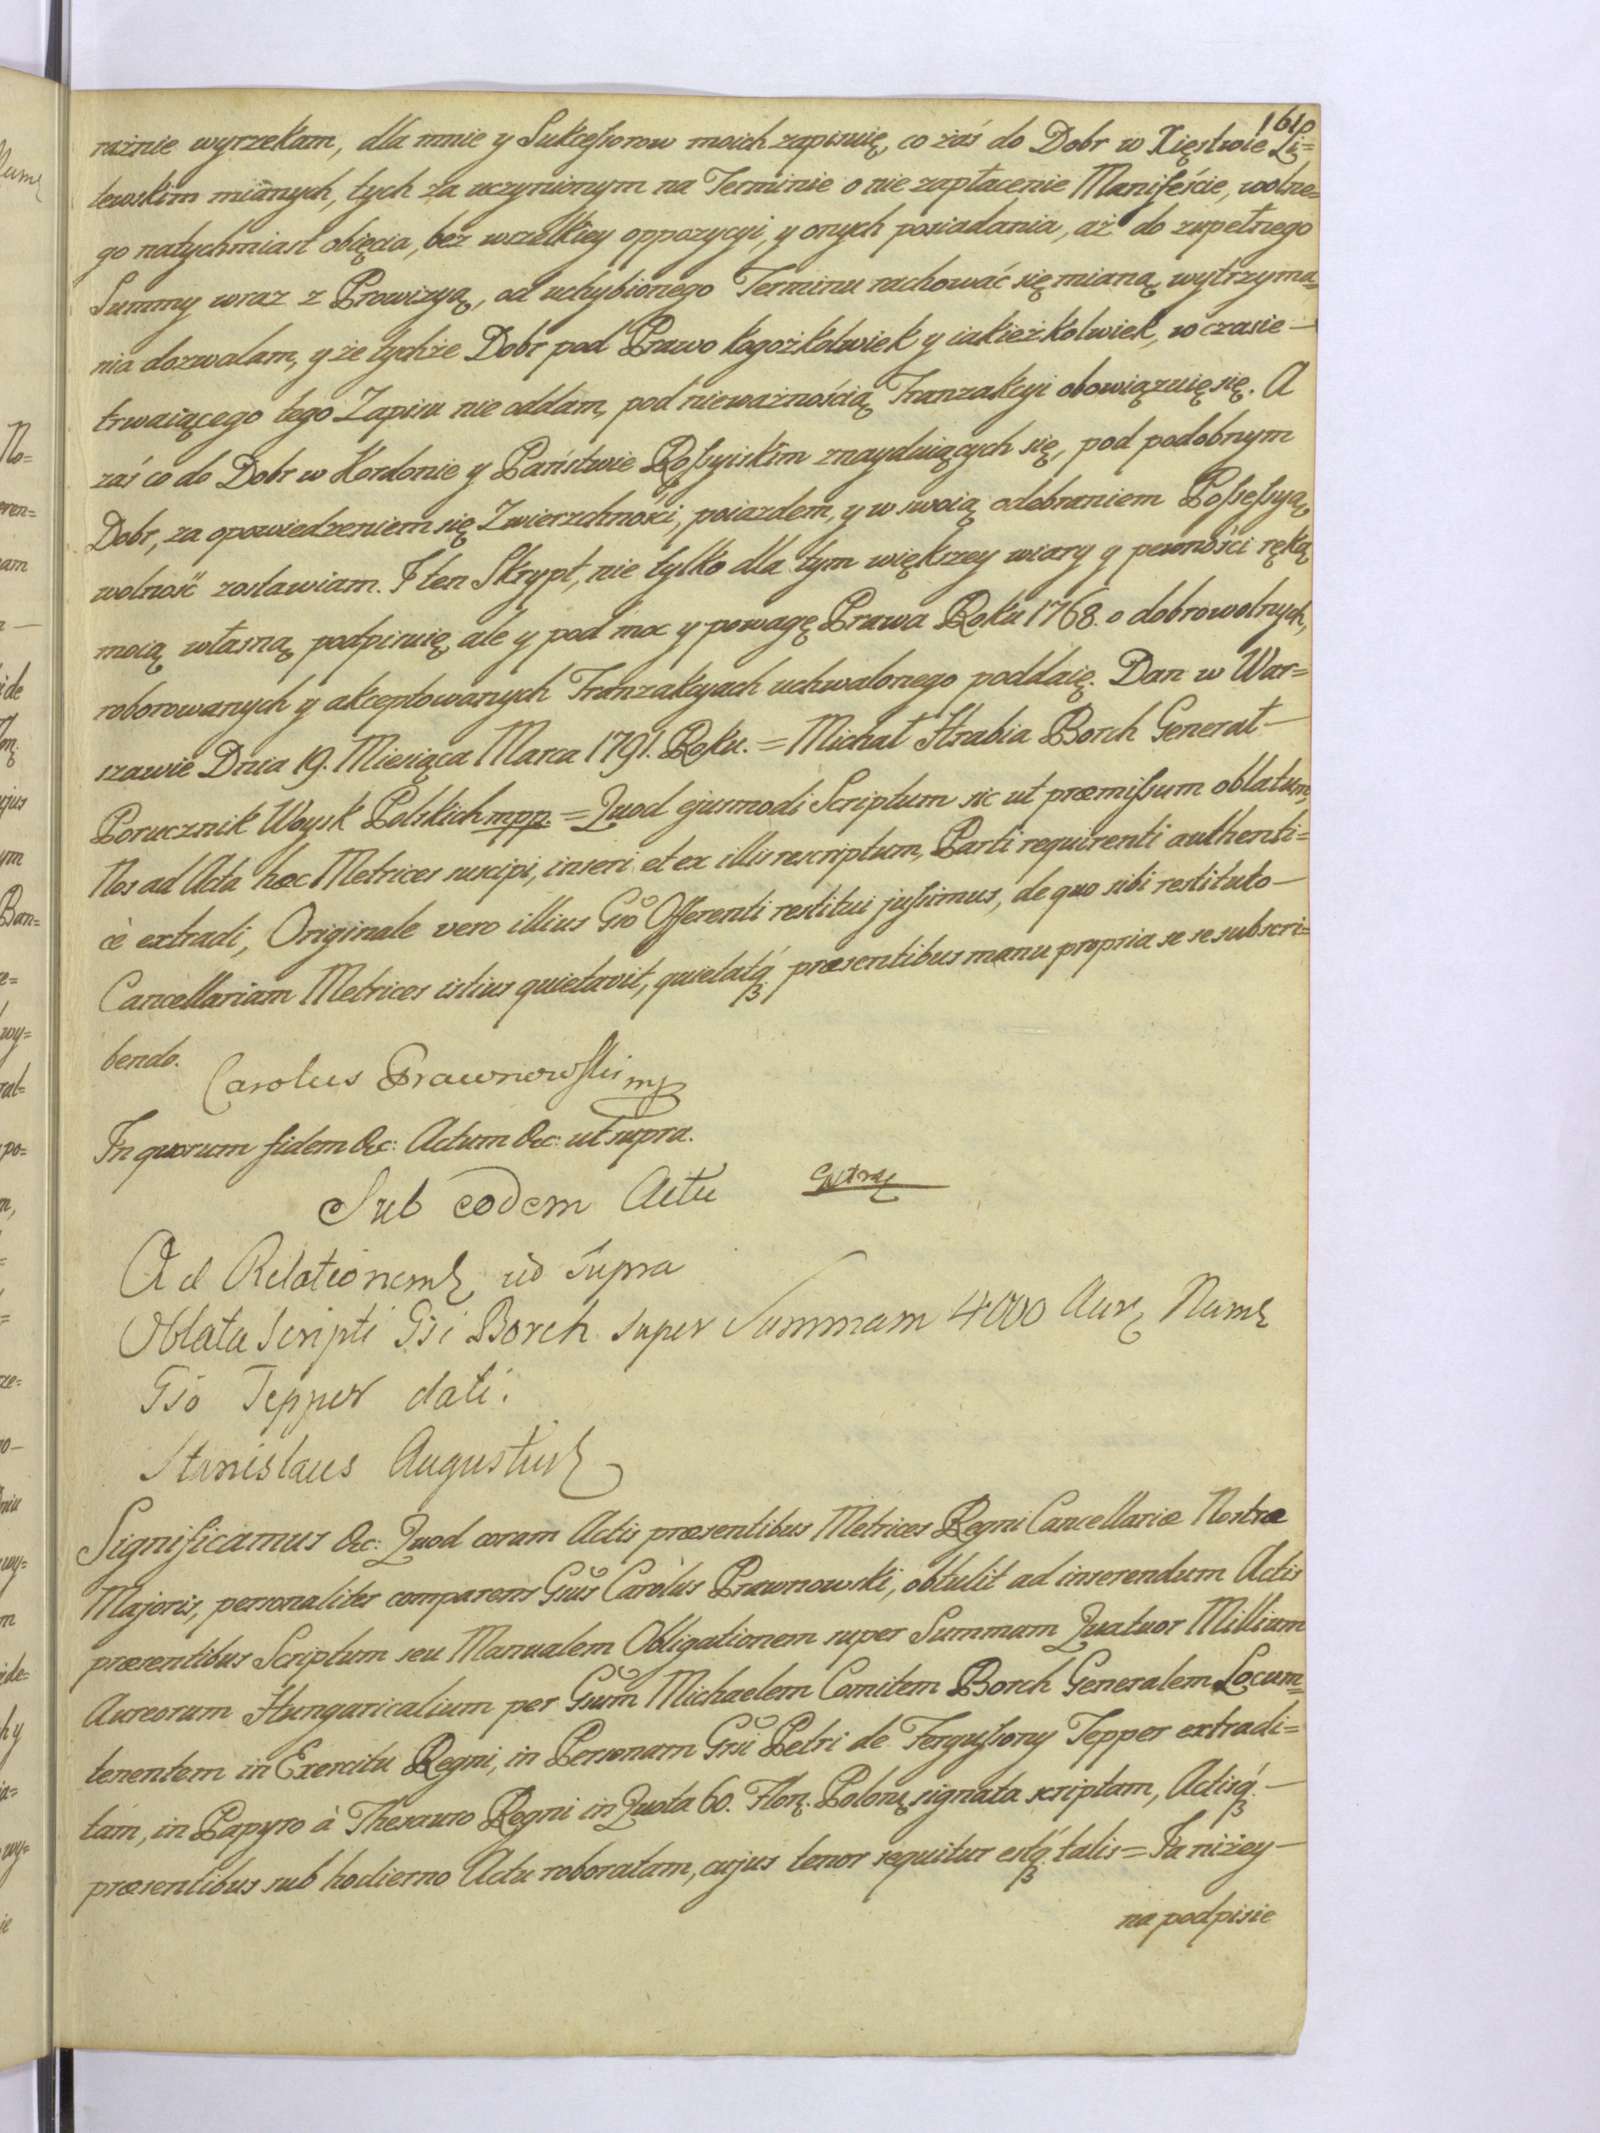 161
raźnie wyrzekam, dla mnie y Sukceſsorow moich zapisuię, co zaś do Dobr w Xięstwie Li=
tewskim mianych, tych za uczynionym na Terminie o nie zapłacenie Manifeście, wolne=
go natychmiast obięcia, bez wszelkiey oppozycyi, y onych posiadania, aż do zupełnego
Summy wraz z Prowizyą, od uchybionego Terminu rachować się mianą, wytrzyma=
nia dozwalam, y że tychże Dobr pod Prawo kogożkolwiek y iakieżkolwiek, w czasie —
trwaiącego tego Zapisu nie oddam, pod nieważnością Tranzakcyi obowiązuię się. A
zaś co do Dobr w Kordonie y Państwie Roſsyiskim znayduiących się, pod podobnym
Dobr, za opowiedzeniem się Zwierzchności, poiazdem, y w swoią odebraniem Poſseſsyą,
wolność zostawiam. I ten Skrypt, nie tylko dla tym większey wiary y pewności ręką
moią własną podpisuię, ale y pod moc y powagę Prawa Roku 1768. o dobrowolnych,
roborowanych y akceptowanych Tranzakcyach uchwalonego poddaię. Dan w War=
szawie Dnia 19. Miesiąca Marca 1791. Roku. = Michał Hrabia Borch Generał —
Porucznik Woysk Polskich mpp. = Quod ejusmodi Scriptum sic ut præmiſsum oblatum,
Nos ad Acta hæc Metrices suscipi, inseri et ex illis rescriptum, Parti requirenti authenti=
cè extradi, Originale vero illius Gso Offerenti restitui juſsimus, de quo sibi restituto —
Cancellariam Metrices istius quietavit, quietatq́ꝫ præsentibus manu propria se se subscri=
bendo.
Carolus Prawnowſki mp
In quorum fidem &c: Actum &c: ut supra.
Sub eodem Actu
Extrad
Ad Relationem ut Supra
Oblata Scripti Gsi Borch super Summam 4000 Aur Num
Gso Tepper dati.
Stanislaus Augustus
Significamus &c: Quod coram Actis præsentibus Metrices Regni Cancellariæ Nostræ
Majoris, personaliter comparens Gsus Carolus Prawnowski, obtulit ad inserendum Actis
præsentibus Scriptum seu Manualem Obligationem super Summam Quatuor Millium
Aureorum Hungaricalium per Gsum Michaelem Comitem Borch Generalem Locum=
tenentem in Exercitu Regni, in Personam Gsi Petri de Ferguſsony Tepper extradi=
tam, in Papyro à Thesauro Regni in Quota 60. Flor. Polon. signata scriptam, Actisq́ꝫ —
præsentibus sub hodierno Actu roboratam, cujus tenor sequitur estq́ꝫ talis = Ja niżey —
na podpisie